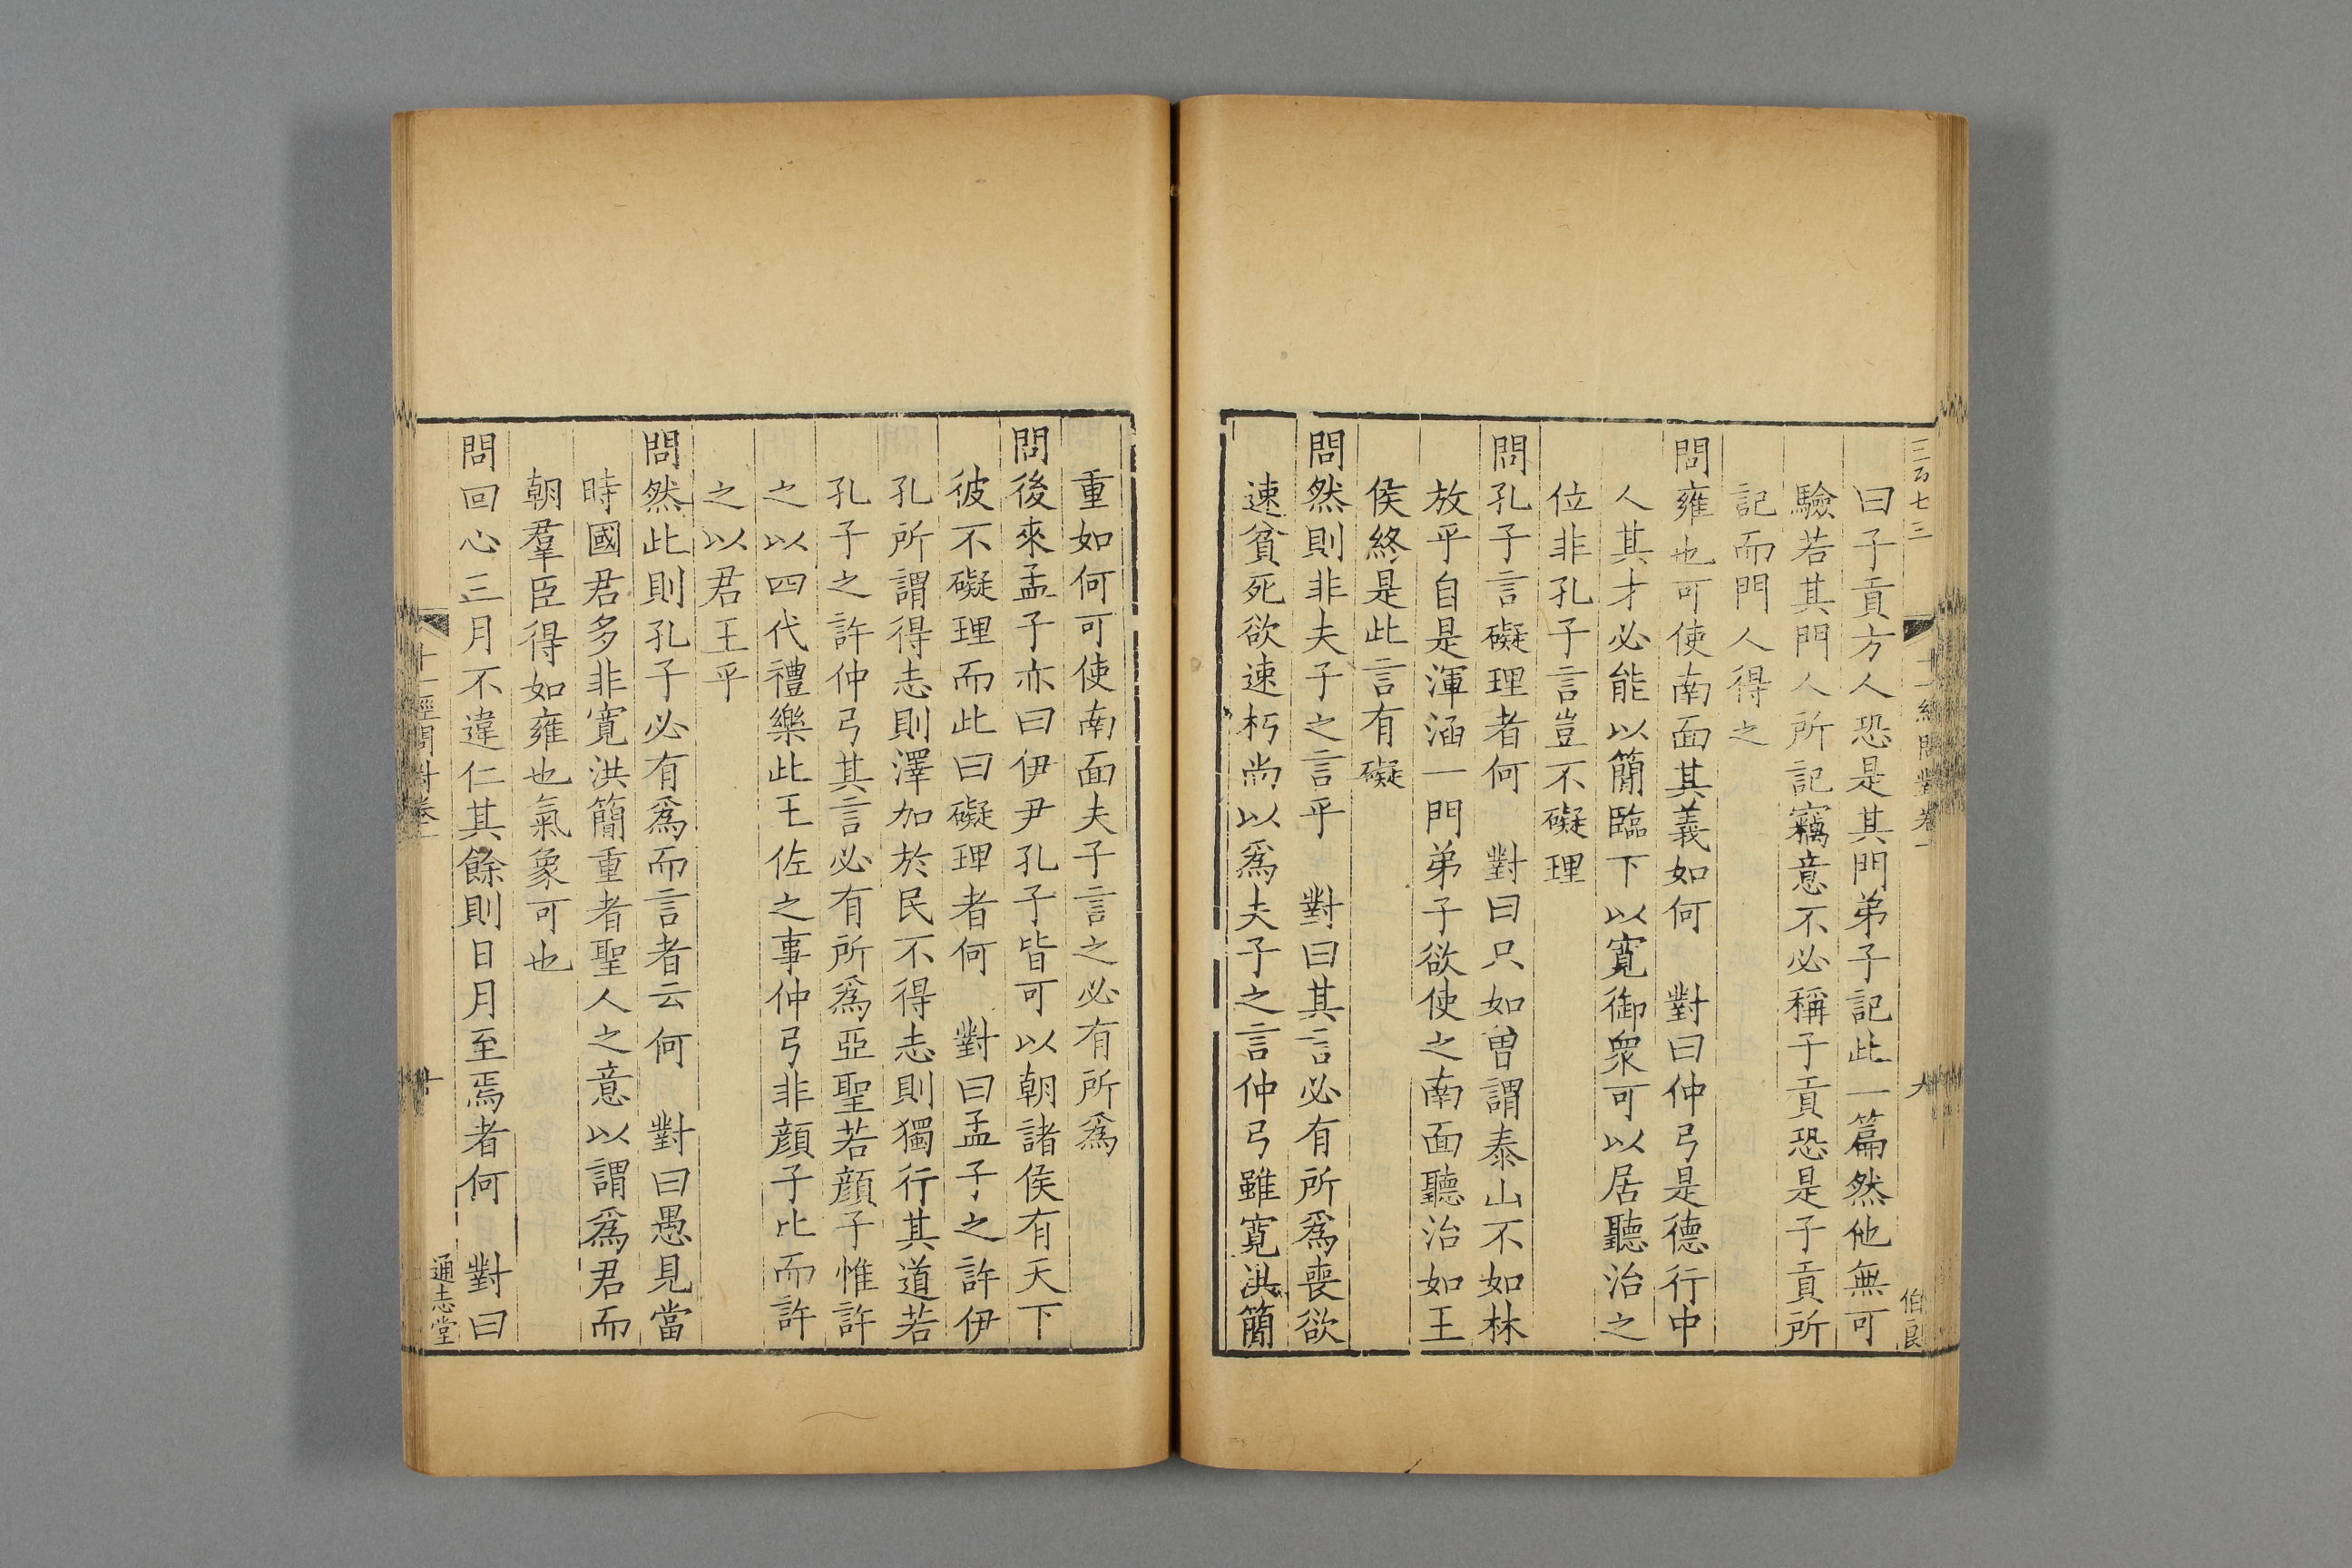 三百七三
十一經問對卷一
九
伯良
曰子貢方人恐是其門弟子記此一篇然他無可
驗若其門人所記竊意不必稱子貢恐是子貢所
記而門人得之
問雍也可使南面其義如何 對曰仲弓是德行中
人其才必能以簡臨下以寛御衆可以居聽治之
位非孔子言豈不礙理
問孔子言礙理者何 對曰只如曽謂泰山不如林
放乎自是渾涵一門弟子欲使之南面聽治如王
侯終是此言有礙
問然則非夫子之言乎 對曰其言必有所爲喪欲
速貧死欲速朽尚以爲夫子之言仲弓雖寛洪簡
重如何可使南面夫子言之必有所爲
問後來孟子亦曰伊尹孔子皆可以朝諸侯有天下
彼不礙理而此曰礙理者何 對曰孟子之許伊
孔所謂得志則澤加於民不得志則獨行其道若
孔子之許仲弓其言必有所爲亞聖若顔子惟許
之以四代禮樂此王佐之事仲弓非顔子比而許
之以君王乎
問然此則孔子必有爲而言者云何 對曰愚見當
時國君多非寛洪簡重者聖人之意以謂爲君而
朝羣臣得如雍也氣象可也
問回心三月不違仁其餘則日月至焉者何 對曰
十一經問對卷一
十
通志堂